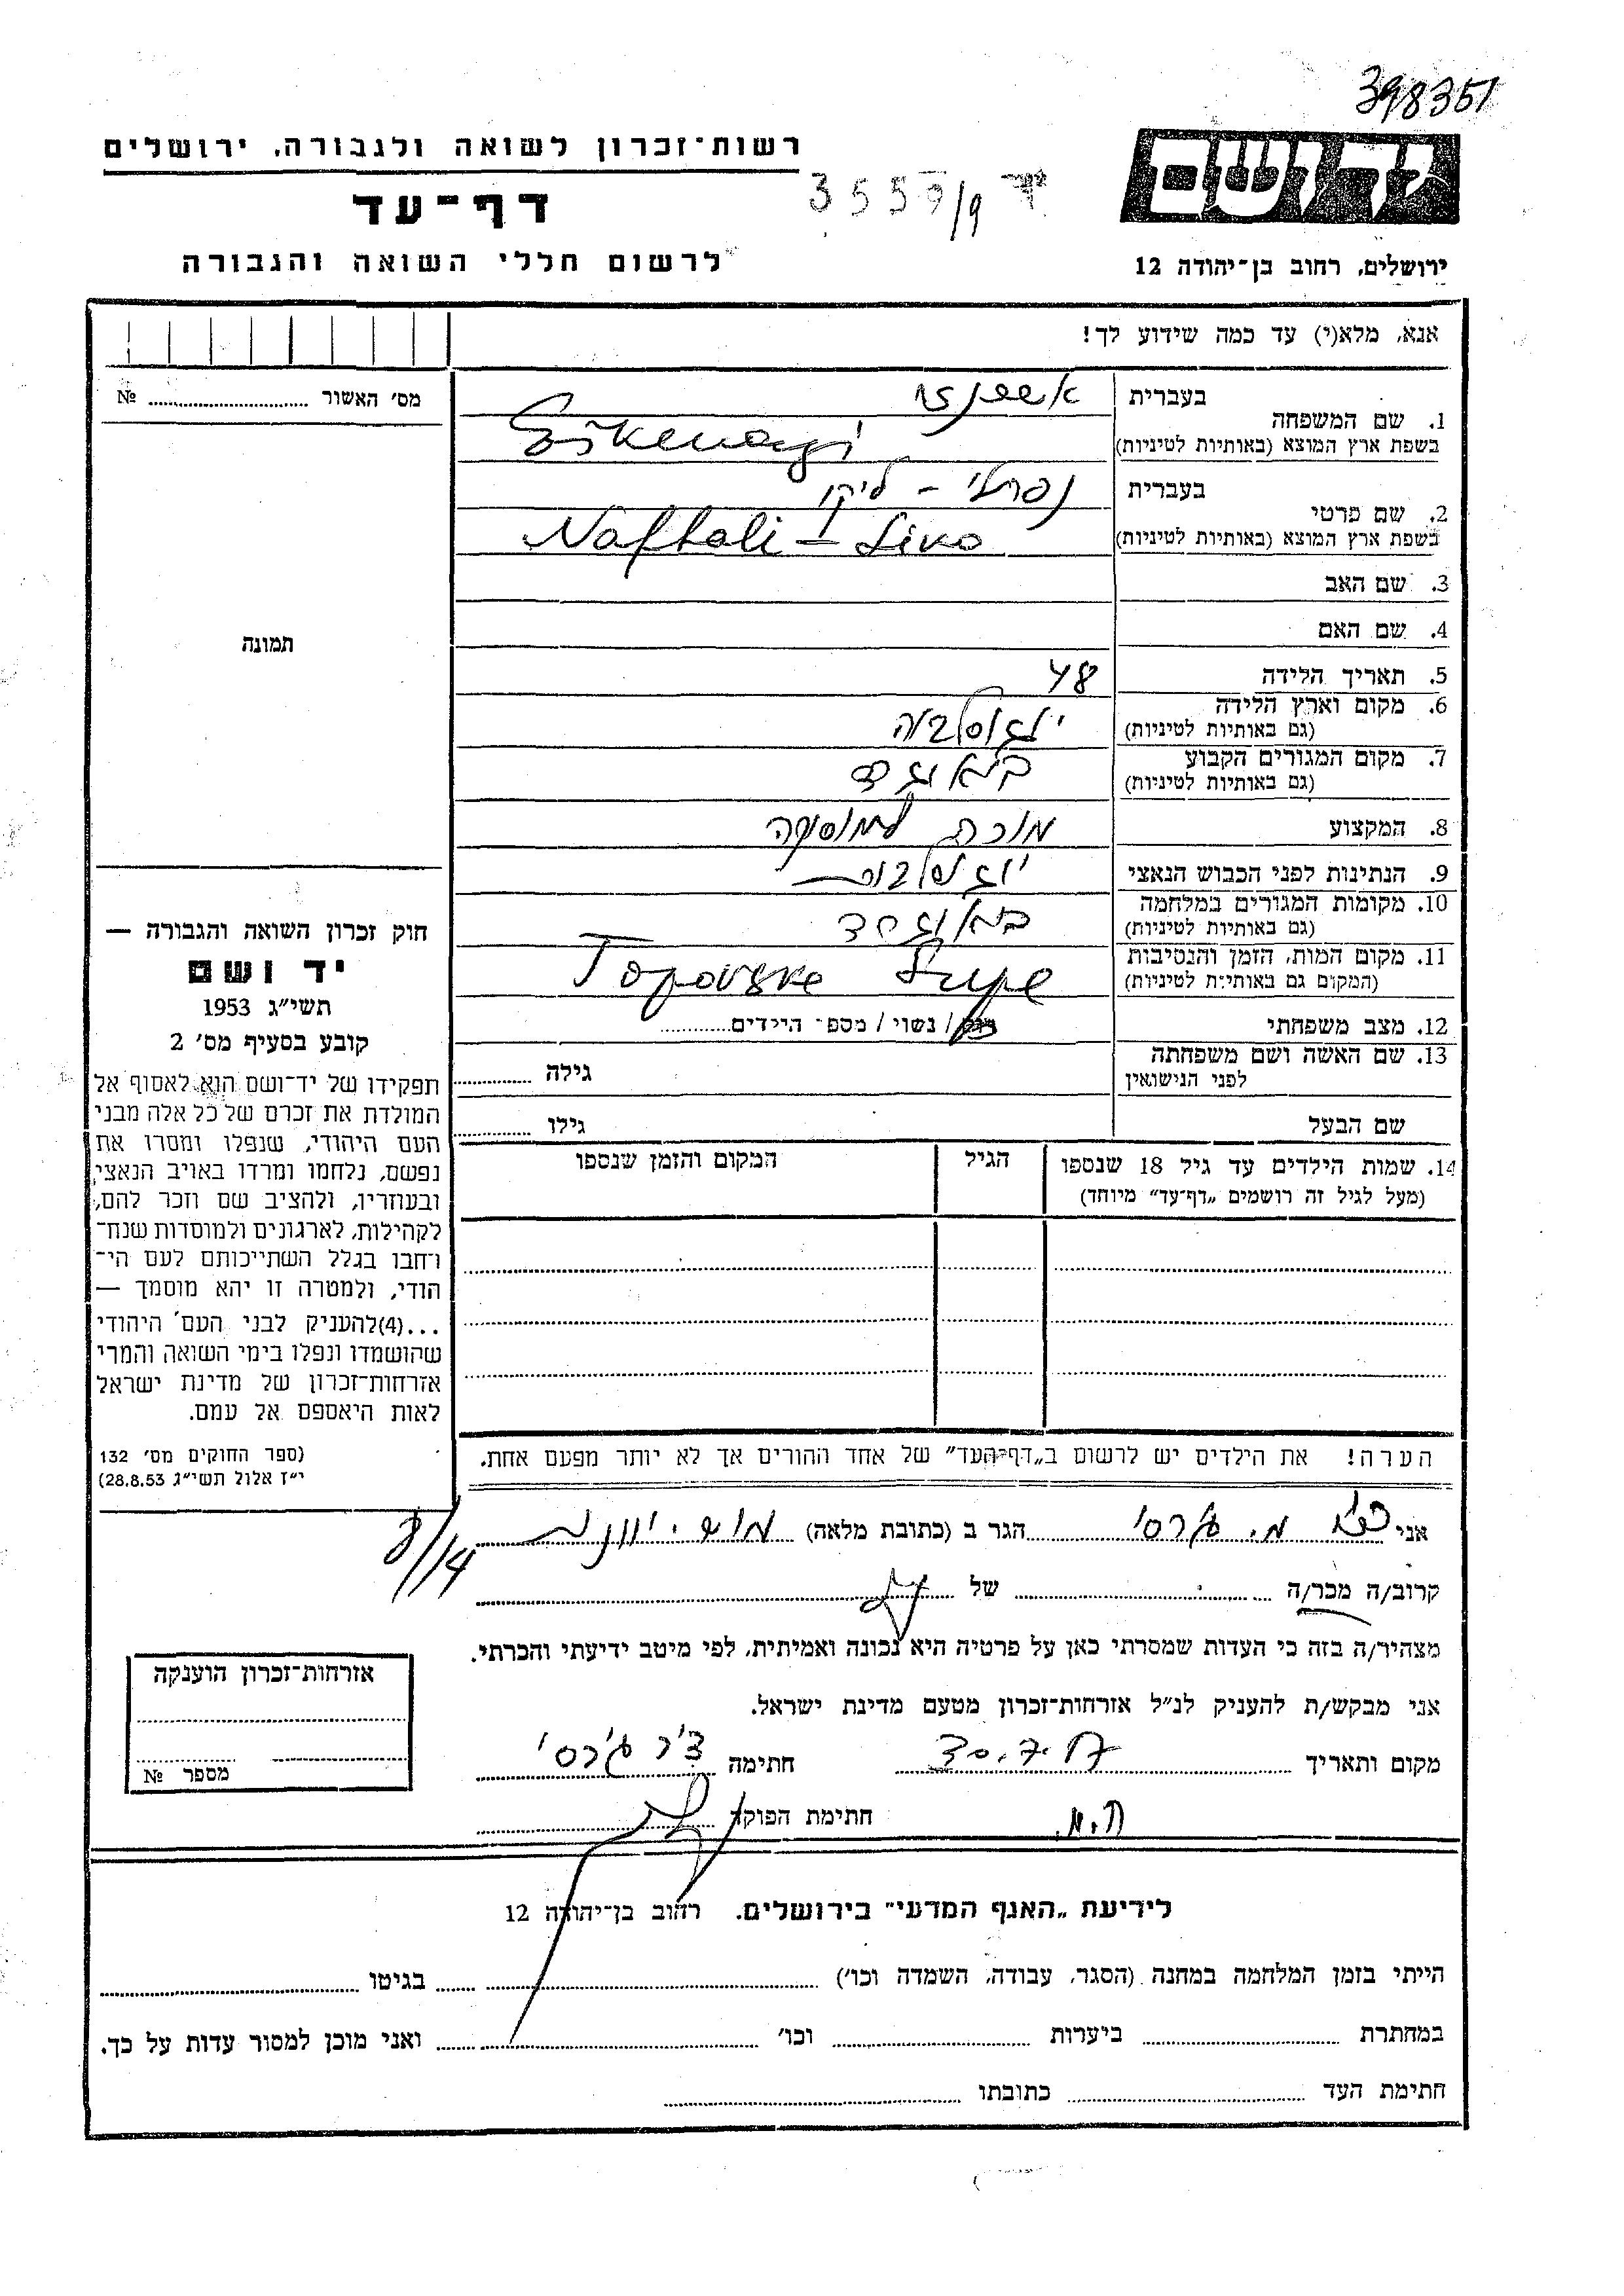 398351
רשות־זכרון לשואה ולגבורה, ירושלים
יד ושם
דף־עד
לרשום חללי השואה והגבורה
ירושלים, רחוב בן־יהודה 12
אנא, מלא(י) עד כמה שידוע לך!
מס' האשור № 
1. שם המשפחה
בעברית אשכנזי
בשפת ארץ המוצא (באותיות לטיניות) Eškenazi
2. שם פרטי
בעברית נפתלי - ליקו
בשפת ארץ המוצא (באותיות לטיניות) Naftali - Liko
3. שם האב
4. שם האם
תמונה
5. תאריך הלידה 48
6. מקום וארץ הלידה
(גם באותיות לטיניות) יוגוסלביה
7. מקום המגורים הקבוע
(גם באותיות לטיניות) בלאוגרד
8. המקצוע מורה למוסיקה
9. הנתינות לפני הכבוש הנאצי
10. מקומות המגורים במלחמה
(גם באותיות לטיניות) בלאוגרד
11. מקום המות, הזמן והנסיבות
(המקום גם באותיות לטיניות) Topovske Šupe
12. מצב משפחתי רוק / נשוי / מספר הילדים
13. שם האשה ושם משפחתה
לפני הנישואין גילה
שם הבעל גילו
14. שמות הילדים עד גיל 18 שנספו הגיל המקום והזמן שנספו
(מעל לגיל זה רושמים „דף־עד” מיוחד)
חוק זכרון השואה והגבורה —
יד ושם
תשי״ג 1953
קובע בסעיף מס' 2
תפקידו של יד־ושם הוא לאסוף אל
המולדת את זכרם של כל אלה מבני
העם היהודי, שנפלו ומסרו את
נפשם, נלחמו ומרדו באויב הנאצי
ובעוזריו, ולהציב שם וזכר להם,
לקהילות, לארגונים ולמוסדות שנח־
רחבו בגלל השתייכותם לעם הי־
הודי, ולמטרה זו יהא מוסמך —
...(4)להעניק לבני העם היהודי
שהושמדו ונפלו בימי השואה והמרי
אזרחות־זכרון של מדינת ישראל
לאות היאספם אל עמם.
(ספר החוקים מס' 132
י״ז אלול תשי״ג 28.8.53)
הערה! את הילדים יש לרשום ב„דף־העד” של אחד ההורים אך לא יותר מפעם אחת.
אני הגר ב (כתובת מלאה)
8/14
קרוב/ה מכר/ה של
מצהיר/ה בזה כי העדות שמסרתי כאן על פרטיה היא נכונה ואמיתית, לפי מיטב ידיעתי והכרתי.
אני מבקש/ת להעניק לנ״ל אזרחות־זכרון מטעם מדינת ישראל.
מקום ותאריך חתימה
חתימת הפוקד
אזרחות־זכרון הוענקה
מספר №
לידיעת „האגף המדעי” בירושלים, רחוב בן־יהודה 12
הייתי בזמן המלחמה במחנה (הסגר, עבודה, השמדה וכו') בגיטו
במחתרת ביערות וכו' ואני מוכן למסור עדות על כך.
חתימת העד כתובתו